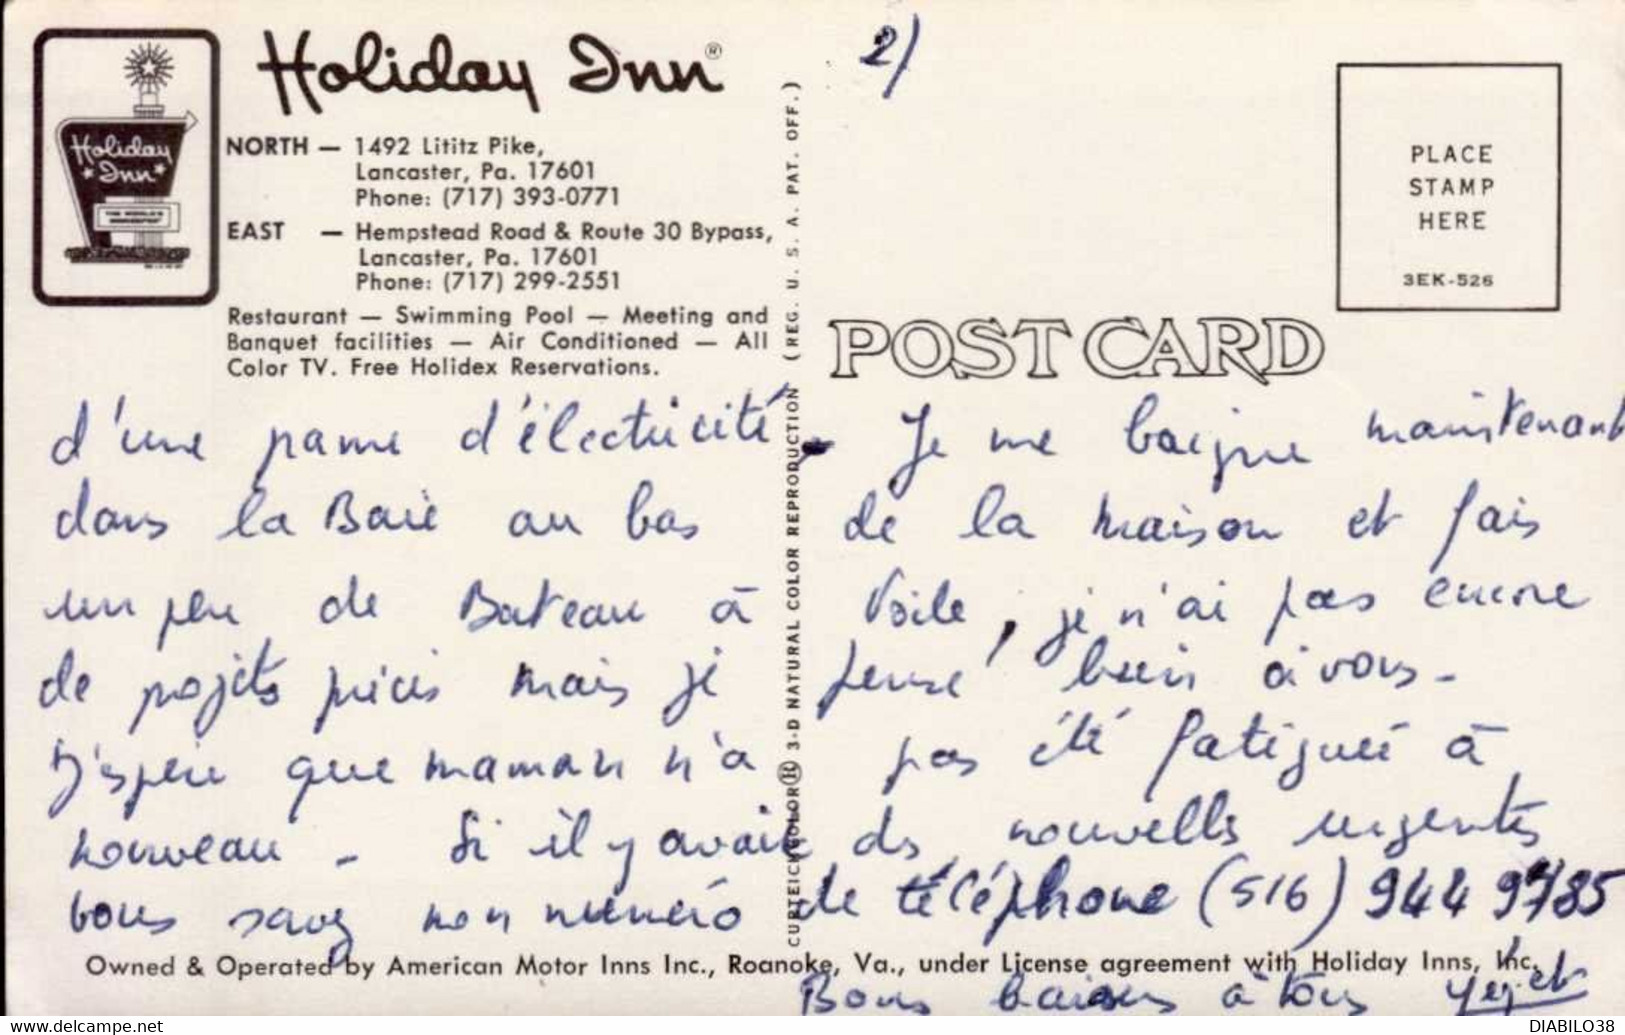 Holiday Inn®
Holiday
Inn
NORTH — 1492 Lititz Pike,
Lancaster, Pa. 17601
Phone: (717) 393-0771
EAST — Hempstead Road & Route 30 Bypass,
Lancaster, Pa. 17601
Phone: (717) 299-2551
Restaurant — Swimming Pool — Meeting and
Banquet facilities — Air Conditioned — All
Color TV. Free Holidex Reservations.
CURTEICHCOLOR® 3-D NATURAL COLOR REPRODUCTION (REG. U. S. A. PAT. OFF.)
2)
PLACE
STAMP
HERE
3EK-526
POST CARD
d'une panne d'électricité. Je me baigne maintenant
dans la Baie au bas de la maison et fais
un peu de Bateau à Voile, je n'ai pas encore
de projets précis mais je pense bien à vous -
J'espère que maman n'a pas été fatiguée à
nouveau - Si il y avait des nouvelles urgentes
vous savez mon numéro de téléphone (516) 944 9785
Owned & Operated by American Motor Inns Inc., Roanoke, Va., under License agreement with Holiday Inns, Inc.
Bons baisers à tous
DIABILO38